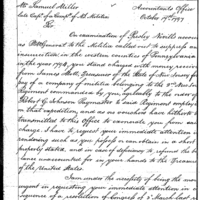 Mr Samuel Miller
Accountants Office
October 17th 1797
Late Capt of a Compy of Militia
Sir
On examination of Presley Nevills accounts
as Paymaster to the Militia called out to suppress an
insurrection in the western counties of Pennsylvania
in the year 1794, you stand charged with money received
from James Mott, Treasurer of the State of New Jersey for
pay of a company of militia belonging to the
Regiment commanded by you, agreeably to the
Paymaster to said Regiment employed
on that expedition, and as no vouchers have
transmitted to the Office to exonerate you from such
charge I have to request your immediate attention in
rendering such as you possess or can obtain in shor
properly stated, and in case of deficiency to refund the
lance unaccounted for in your hands to the Treasurer
of the United States.
I am under the necessity of being the more
urgent in requesting your immediate attention in
sequence of a resolution of Congress of 3 March last